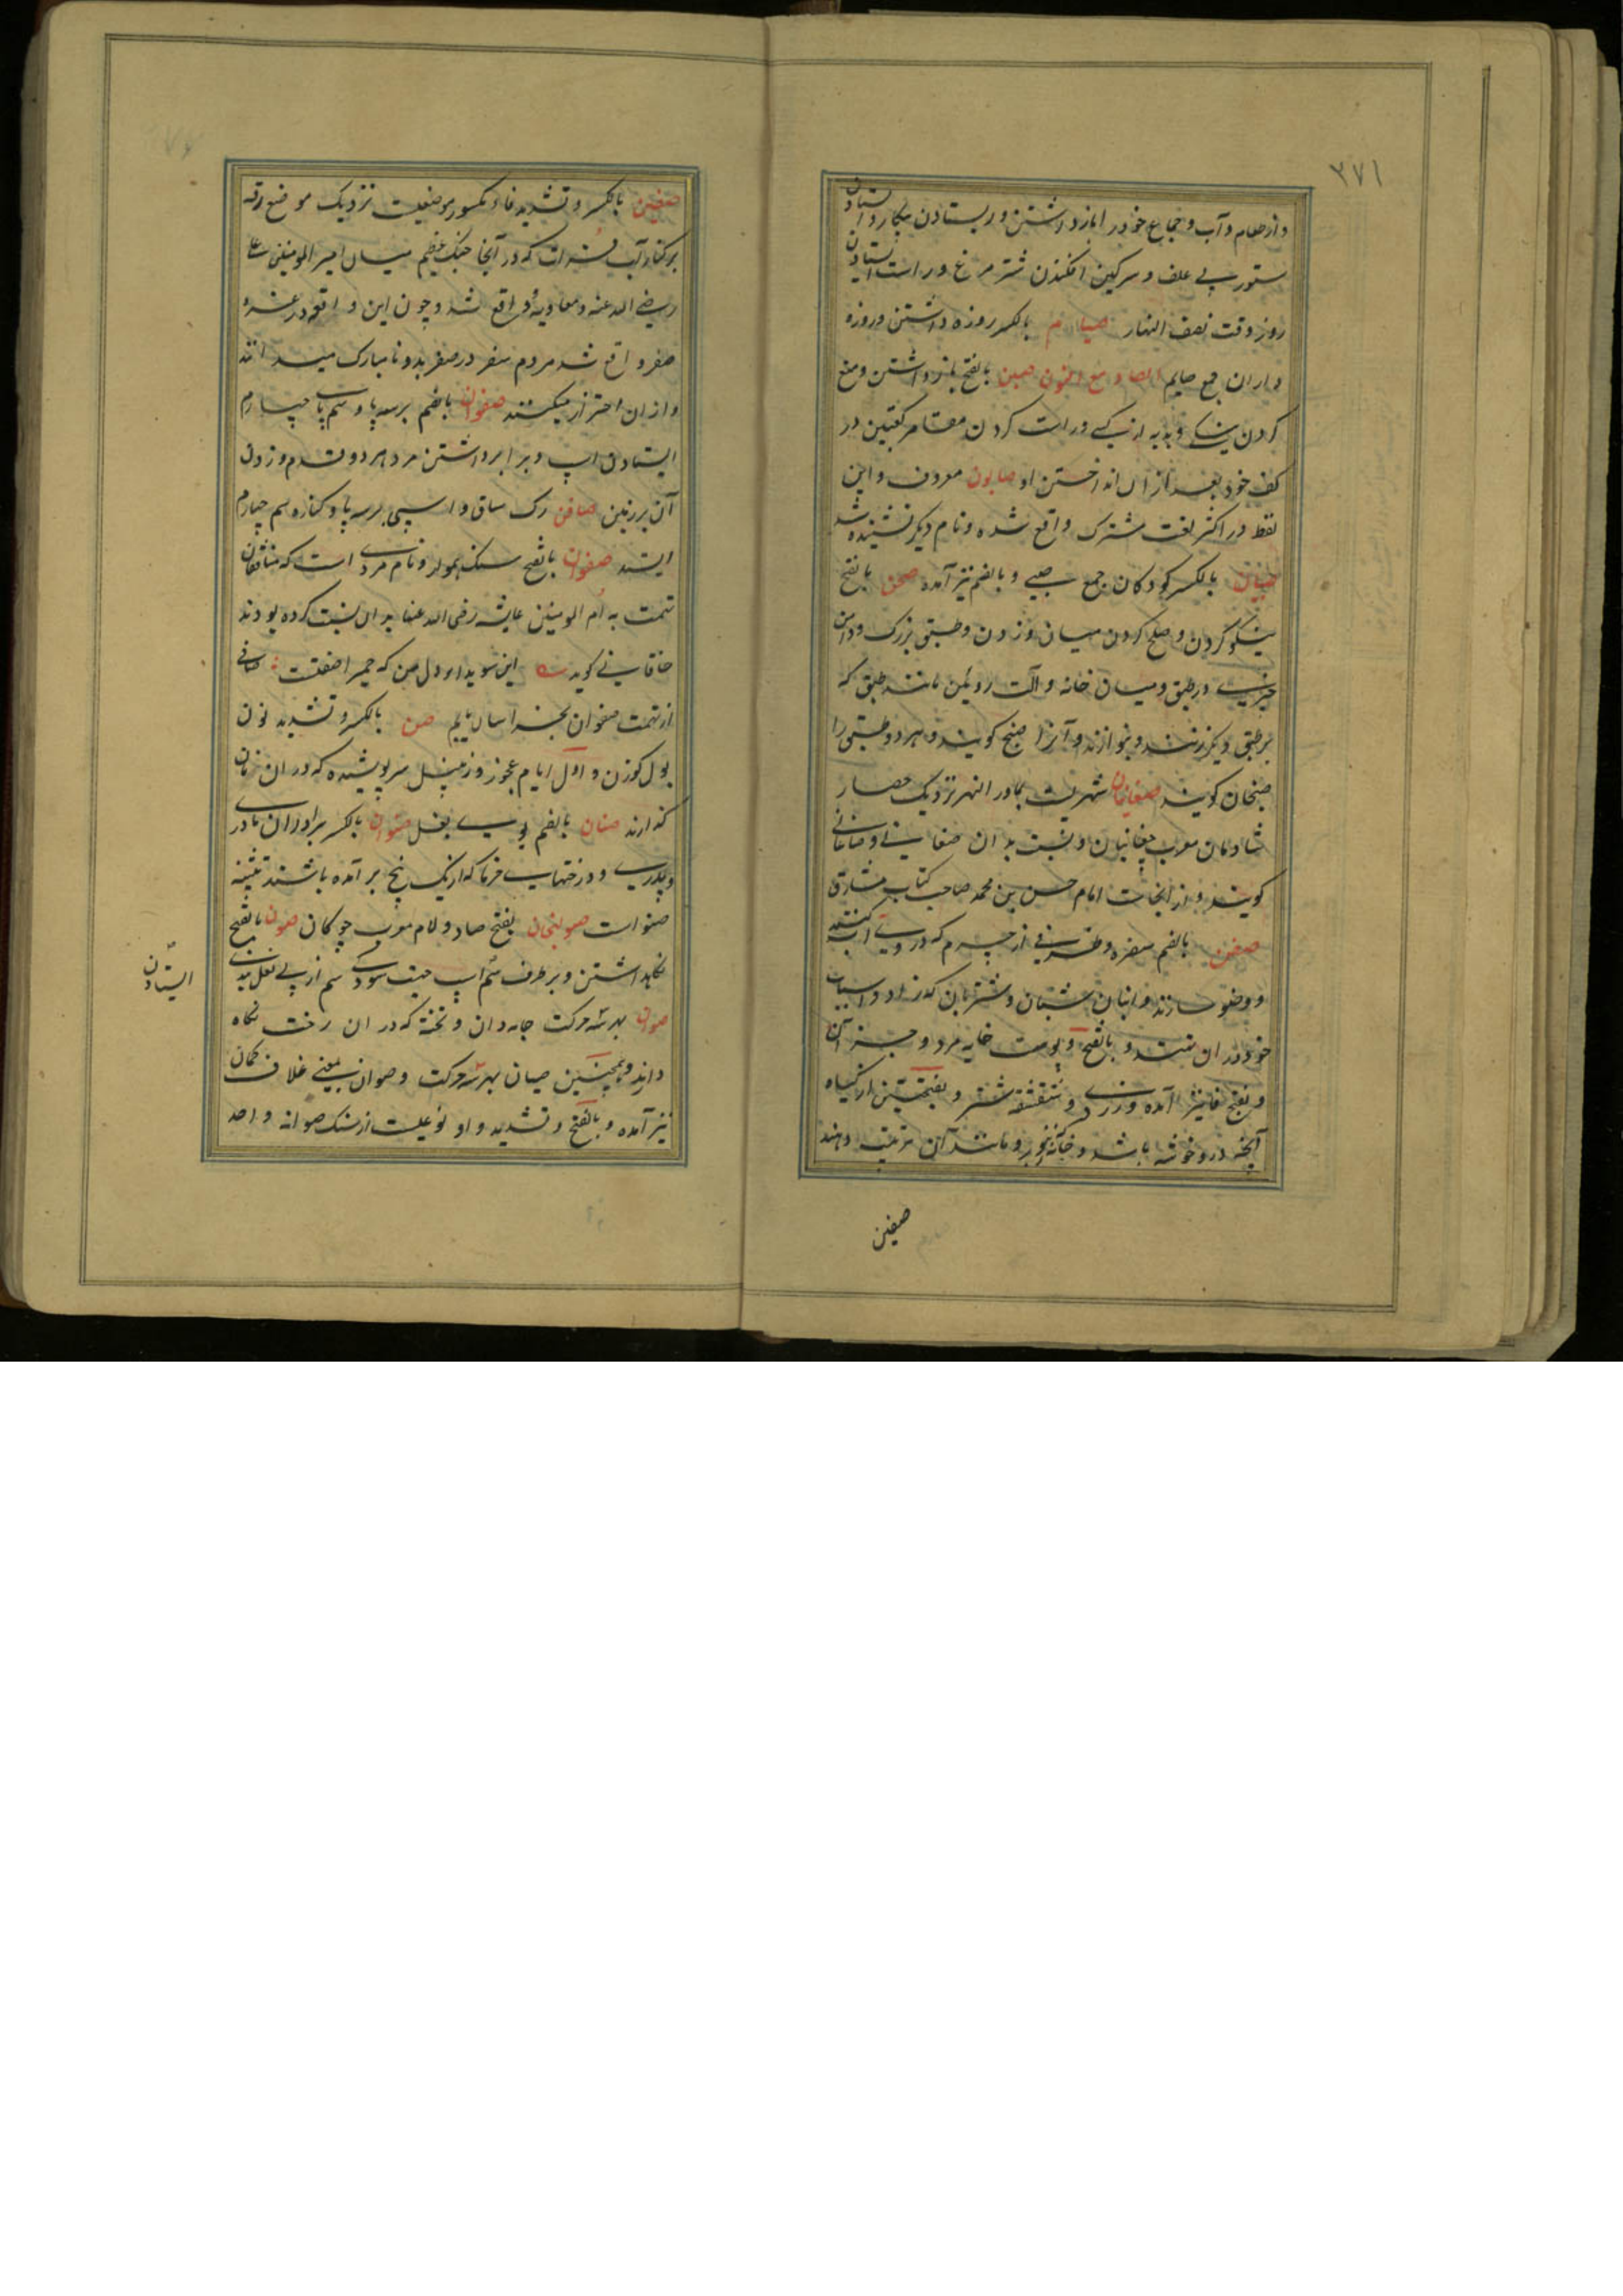 ۳۷۱
و از طعام و آب و جماع خود را باز داشتن و ایستادن بیکار و ایستادن
ستور بی علف و سرکین افکندن شتر مرغ و راست ایستادن
روز وقت نصف النهار صیام بالکسر روزه داشتن و روزه
داران جمع صایم الصاد مع النون صبن بالفتح باز داشتن و منع
کردن نیکی و هدیه از کسی و راست کردن مقامر کعبتین در
کف خود بعد از آن انداختن او صابون معروف و این
لفظ در اکثر لغت مشترک واقع شده و نام دیگر نشنیده شد
صبیان بالکسر کودکان جمع صبی و بالضم نیز آمده صحن بالفتح
نیکو کردن و صلح کردن میان و زدن و طبقی بزرک و دادن
چیزی در طبق و میان خانه و آلت روئین مانند طبق که
بر طبق دیگر زنند و بنوازند و آنرا صنج کویند و هر دو طبق را
صنجان کویند صغانیان شهریست بماور النهر نزدیک حصار
شادمان معرب چغانیان و نسبت بدان صغانی و صاغانی
کویند و از انجاست امام حسن بن محمد صاحب کتاب مشارق
صفن بالضم سفره و ظرفی از چرم که در وی آب کنند
و وضو سازند و انبان شبان و شتربان که زاد و اسباب
خود در ان نهند و بالفتح و پوست خایه مرد و جز آن
و بفتح فا نیز آمده و شقشقه شتر و بفتحتین از کیاه
آنچه در و خوشه باشد و خانه زنبور و مانند آن ترتیب دهند
صفین
صفین بالکسر و تشدید فاء مکسور موضعیست نزدیک موضع رقه
بر کنار آب فرات که در آنجا جنک عظیم میان امیر المومنین علی
رضی الله عنه و معاویه واقع شد و چون این واقعه در غره
صفر واقع شد مردم سفر در صفر بد و نامبارک میدانند
و از ان احتراز میکنند صفون بالضم بر سه پا و سم پای چهارم
ایستادن اسپ و برابر داشتن مرد هر دو قدم و زدن
آن بر زمین صافن رک ساق و اسپی بر سه پا و کناره سم چهارم
ایستد صفوان بالفتح سنک هموار و نام مردی است که منافقان
تهمت به ام المومنین عایشه رضی الله عنها بدان نسبت کرده بودند
خاقانی کوید این سویدا و دل من که حمیرا صفتست صافی
از تهمت صفوان بخراسان یابم صن بالکسر و تشدید نون
بول کوزن و اول ایام عجوز و زنبیل سر پوشیده که در ان نان
کذارند صنان بالضم بوی بغل صنوان بالکسر برادران مادر
و پدری و درختهای خرما که از یک بیخ بر آمده باشند تثنیه
صنو است صولجان بفتح صاد و لام معرب چوکان صون بالفتح
نکاهداشتن و بر طرف سم اسپ جهت سودگی سم از بی نعل بندی
ایستادن
صوان بهر سه حرکت جامه دان و تخته که در ان رخت نکاه
دارند و همچنین صیان بهر سه حرکت و صوان بمعنی غلاف کمان
نیز آمده و بالفتح و تشدید واو نوعیست از سنک صوانه واحد